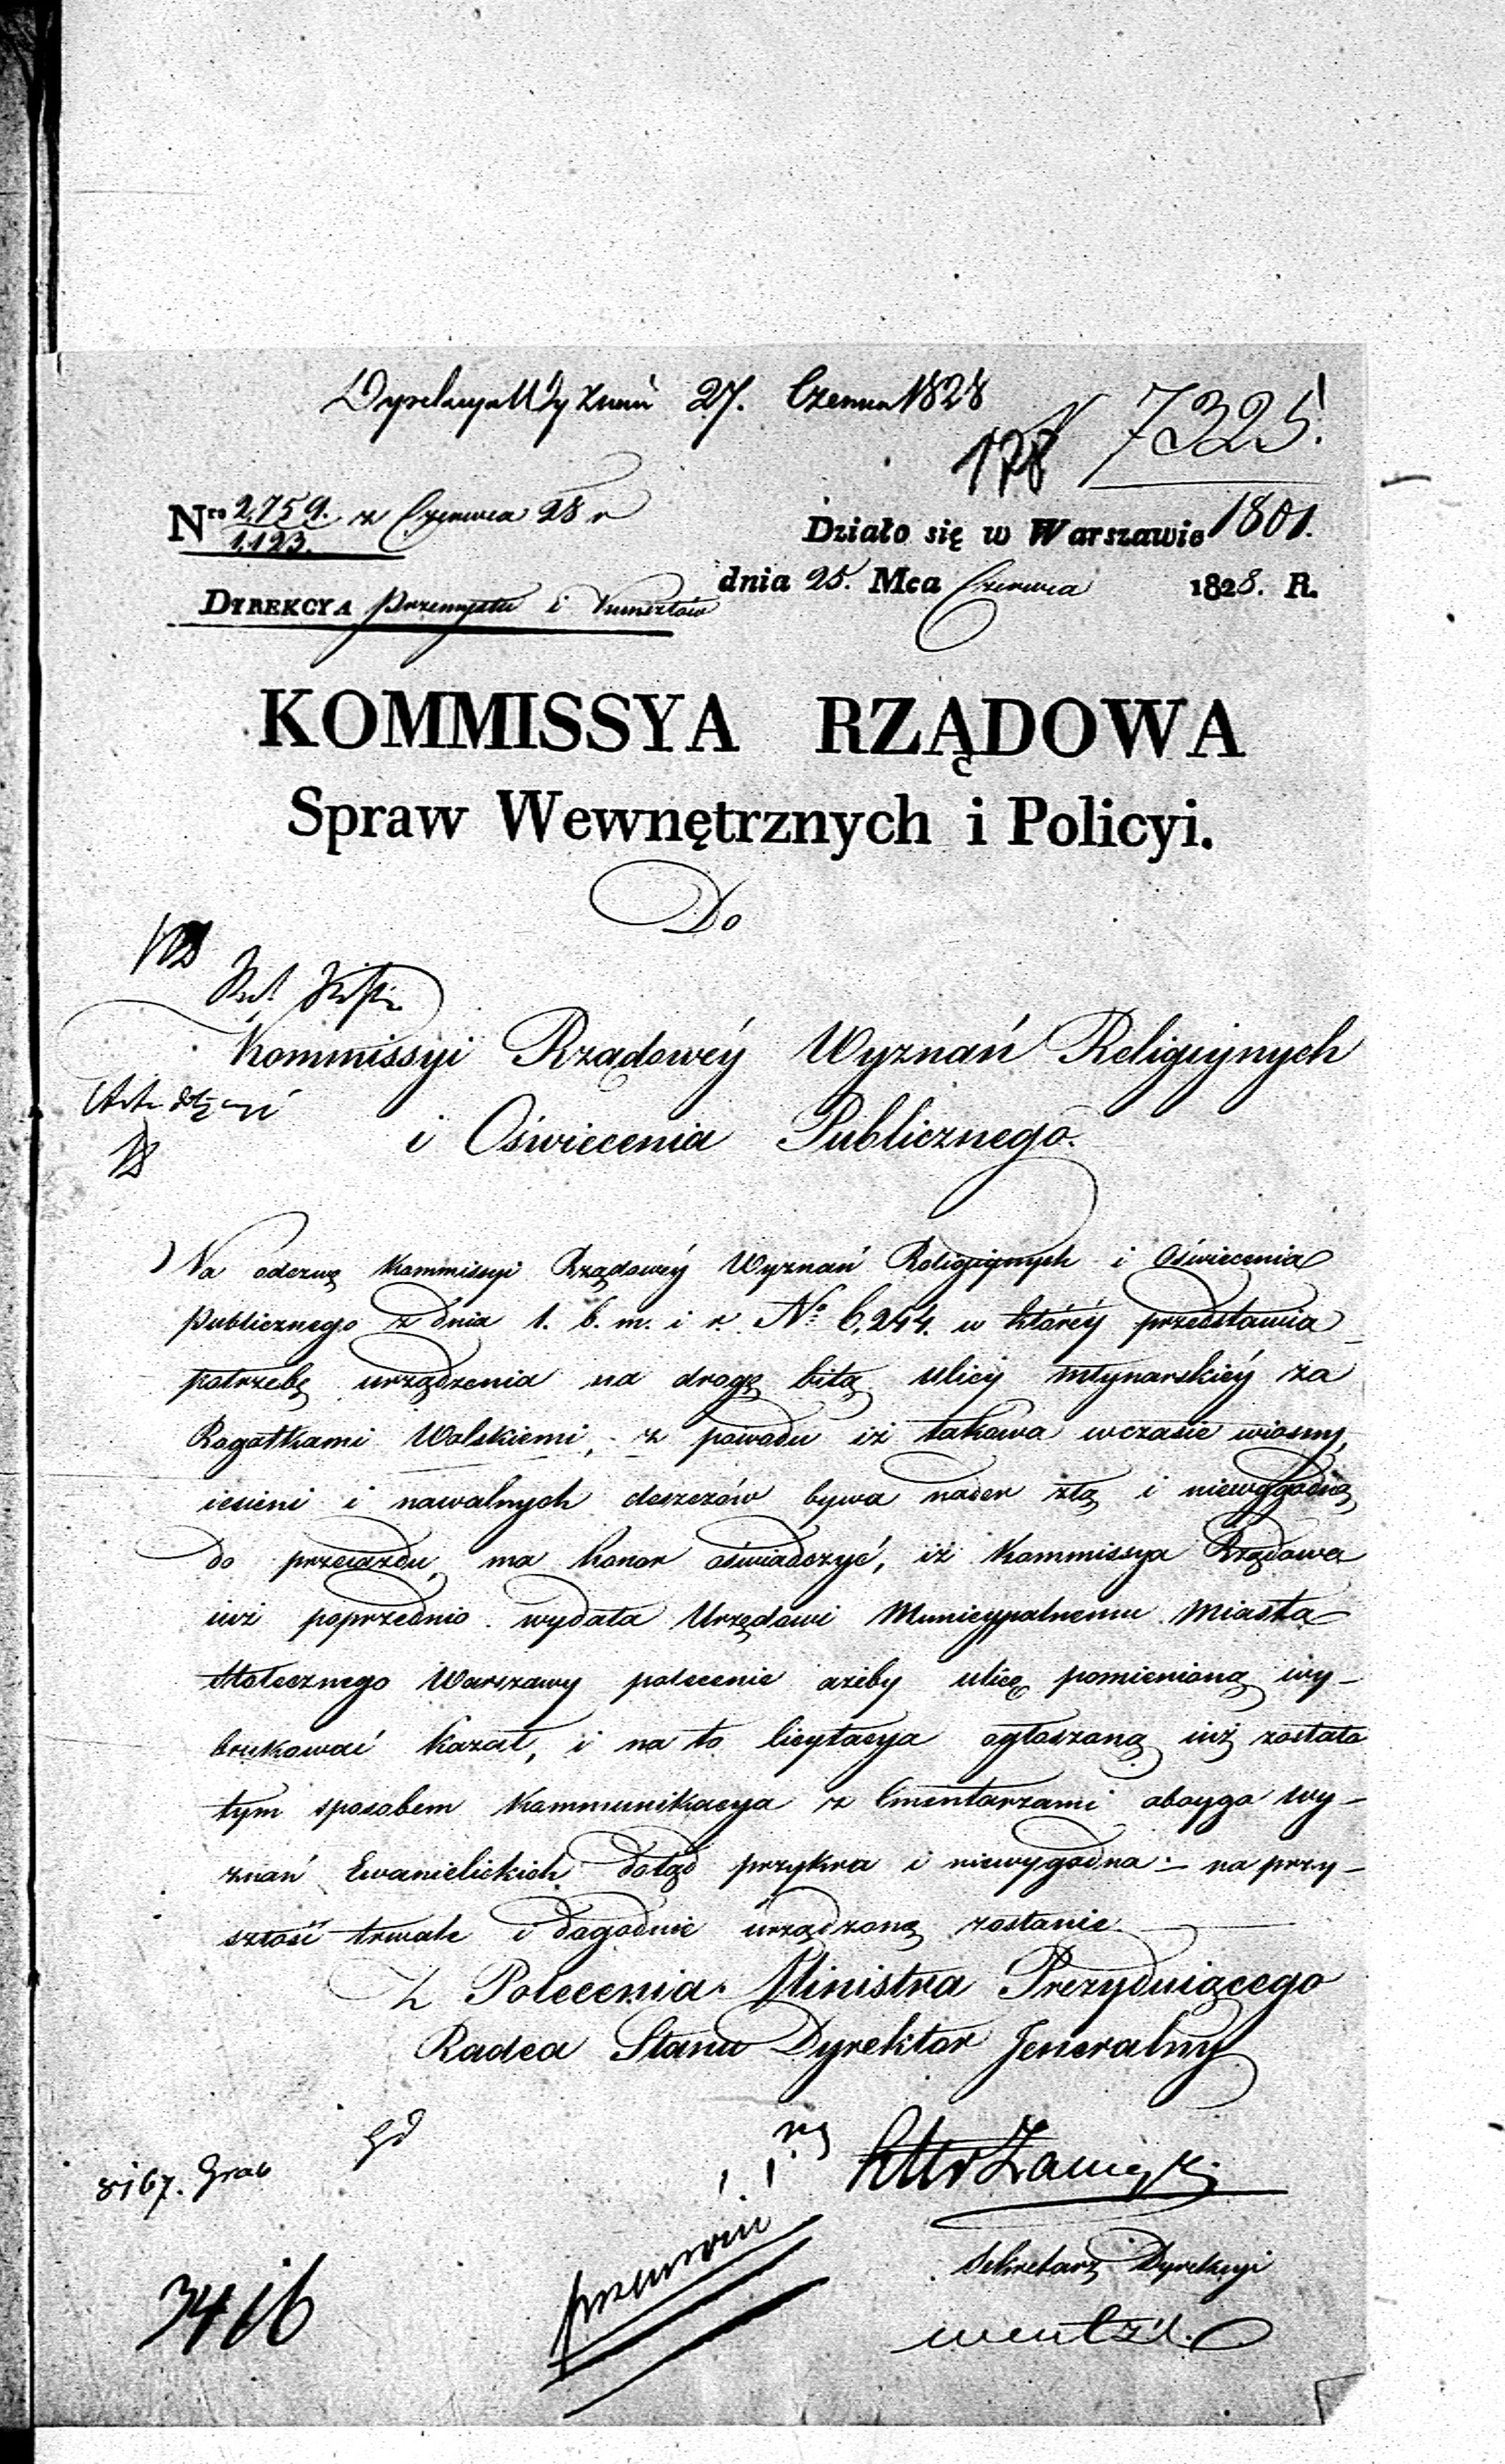 Dyrekcya Wyznań 27. Czerwca 1828
178 N 7325.
Nro 2,759. z Czerwca 28 r
1,123.
1801.
Działo się w Warszawie
dnia 25. Mca Czerwca 1828. R.
DYREKCYA Przemysłu i Kunsztów
KOMMISSYA RZĄDOWA
Spraw Wewnętrznych i Policyi.
Do
Kommissyi Rządowéy Wyznań Religiynych
i Oświecenia Publicznego.
Na odezwę Kommissyi Rządowéy Wyznań Religiynych i Oświecenia
Publicznego z dnia 1. b. m. i r. No 6,244. w któréy przedstawia
potrzebę urządzenia na drogę bitą ulicy Młynarskiéy za
Rogatkami Wolskiemi, z powodu iż takowa w czasie wiosny,
iesieni i nawalnych deszczów bywa nader złą i niewygodną
do przeiazdu, ma honor oświadczyć, iż Kommissya Rządowa
iuż poprzednio wydała Urzędowi Municypalnemu Miasta
Stołecznego Warszawy polecenie ażeby ulicę pomienioną wy-
brukować kazał, i na to licytacya ogłoszoną iuż została
tym sposobem Kommunikacya z Cmentarzami oboyga Wy-
znań Ewanielickich dotąd przykra i niewygodna - na przy-
szłość trwale i dogodnie urządzoną zostanie.
Z Polecenia Ministra Prezyduiącego
Radca Stanu Dyrektor Jeneralny
8167. Grab
3416
Sekretarz Dyrekcyi